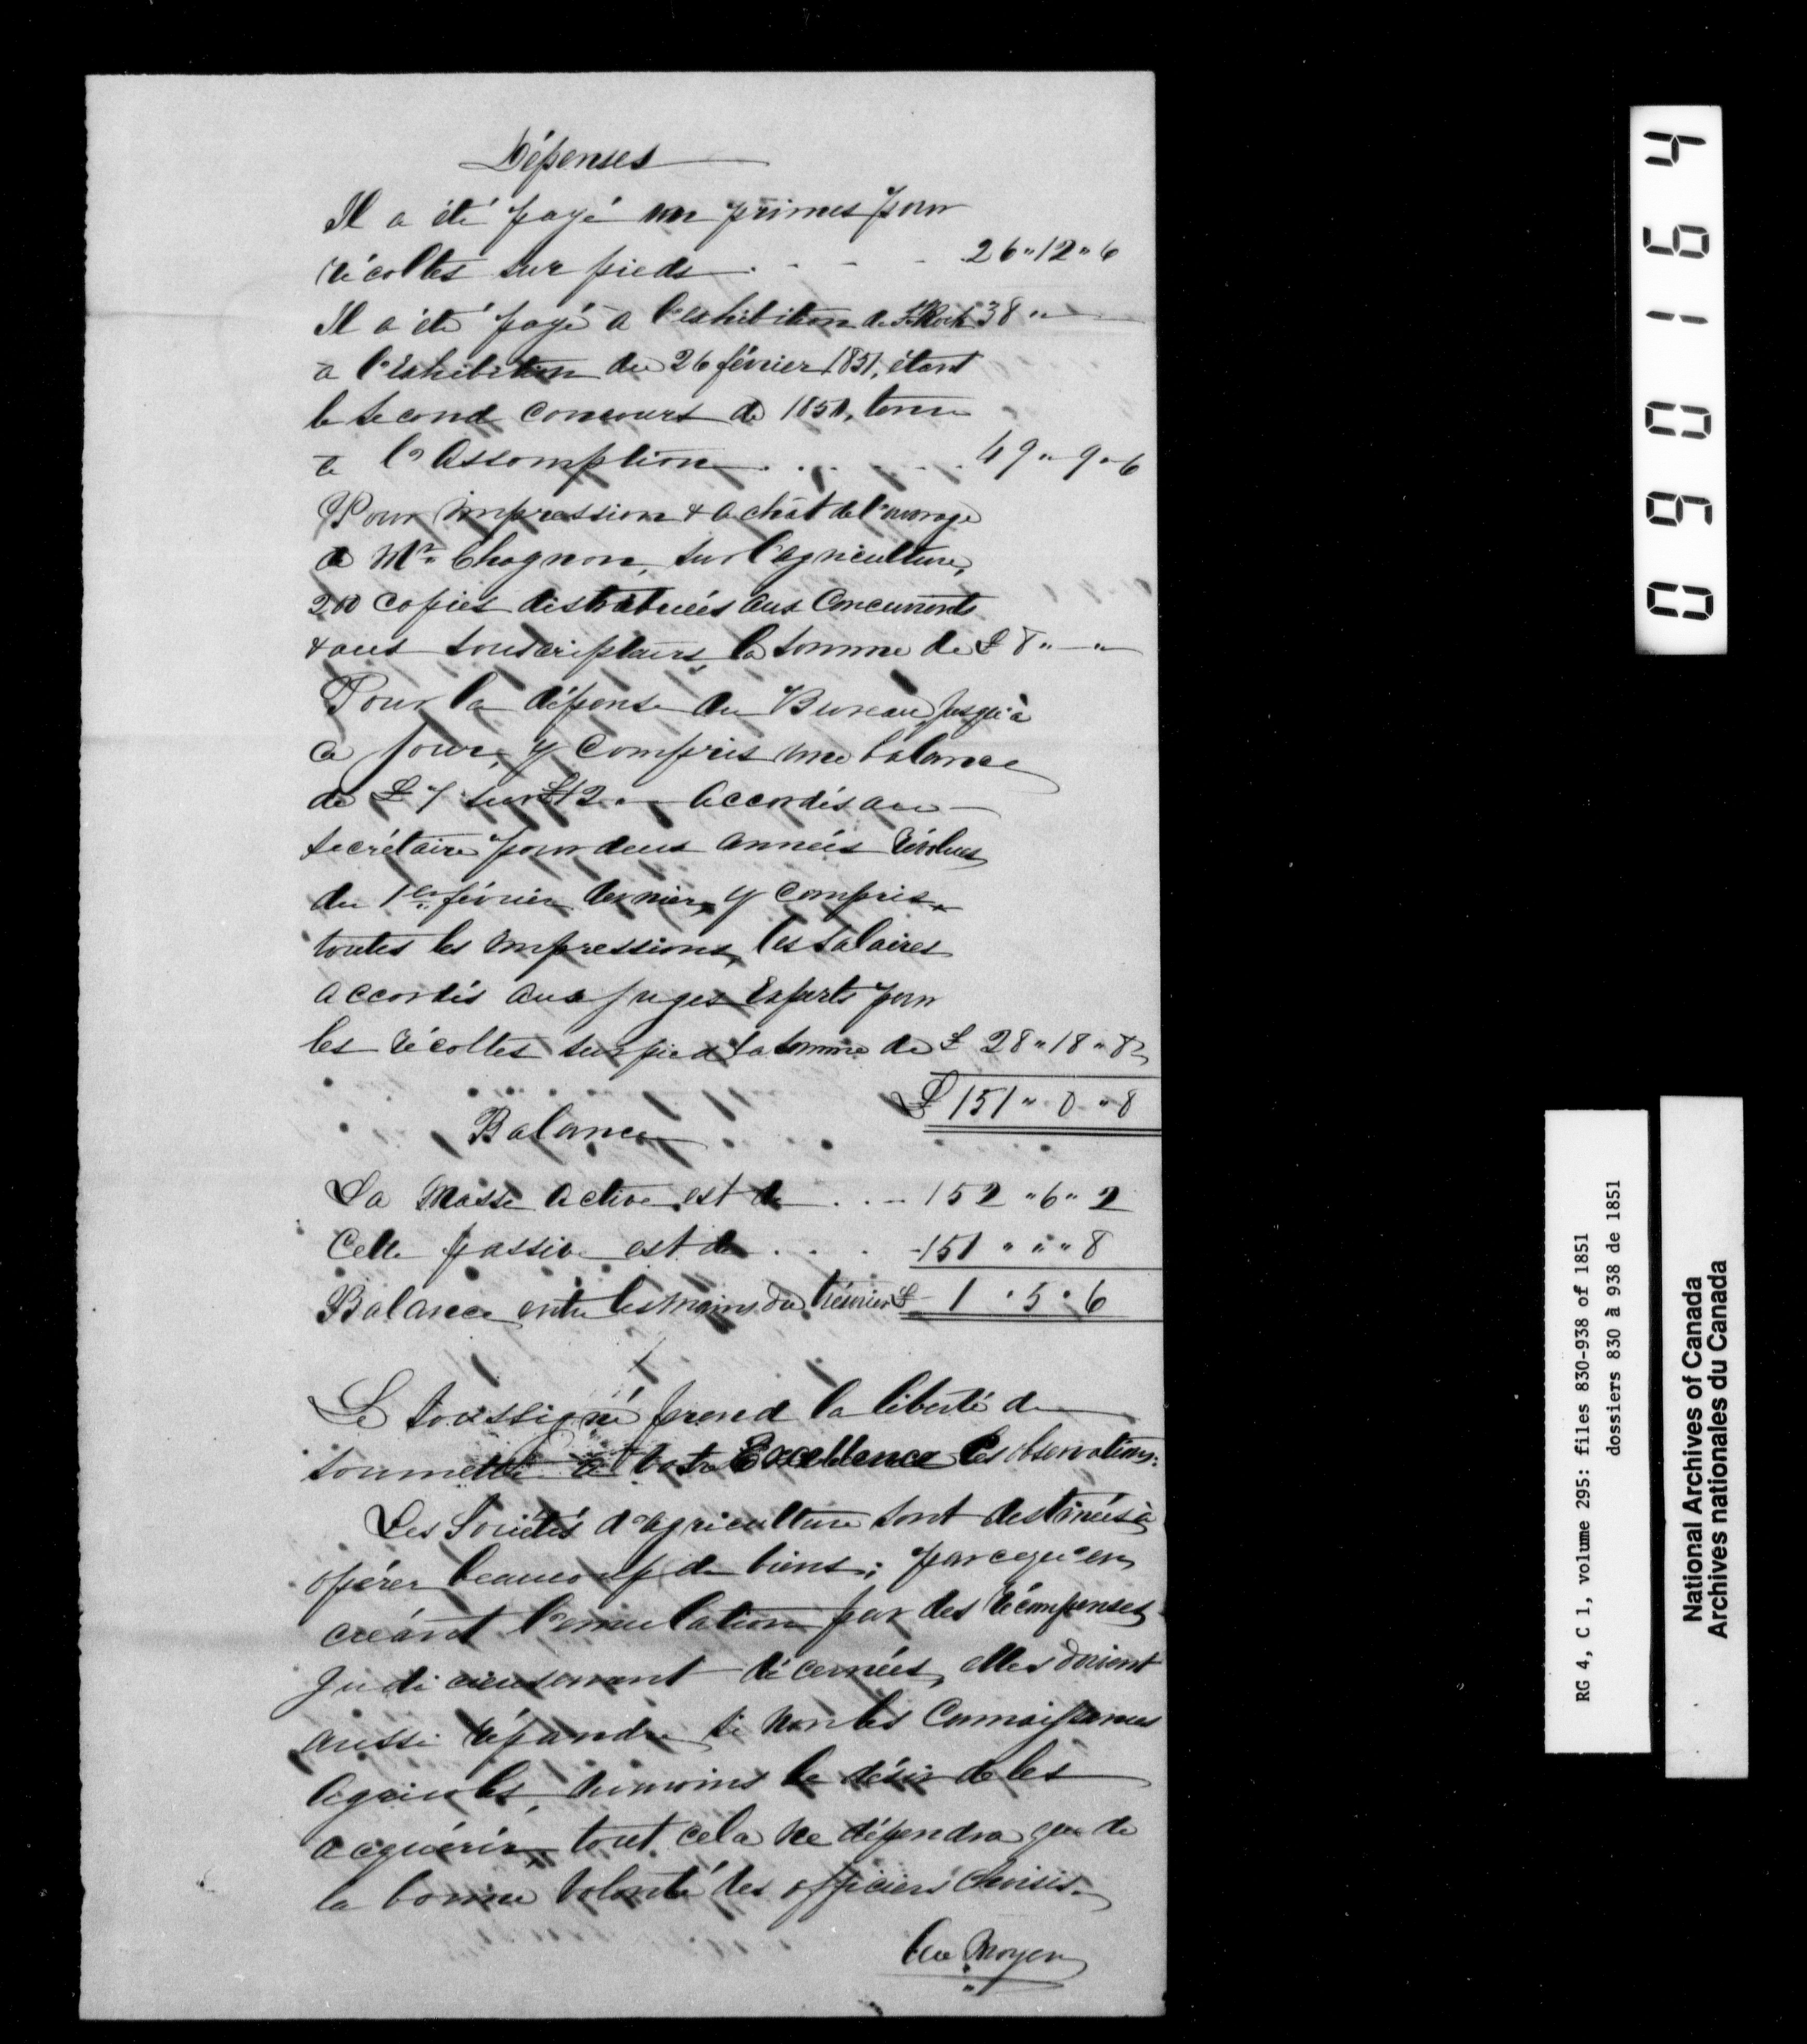 Dépenses
Il a été payé en primes pour
récoltes sur pieds . - - - 26 " 12 " 6
Il a été payé à l'exhibition de St Roch 38 " —
à l'exhibition du 26 février 1851, étant
le second concours de 1850, tenu
à l'Assomption . . . . . . 49 " 9 " 6
Pour impression & achat de l'ouvrage
de Mr. Chagnon, sur l'agriculture,
200 copies distribuées aux Concurrents
& aux souscripteurs, la somme de £ 8 " — "
Pour la dépense du Bureau, jusqu'à
ce jour, y compris une balance
de £ 7 sur £ 12 " — accordés au
secrétaire pour deux années révolues
du 1er février dernier, y compris
toutes les impressions, les salaires
accordés aux juges Experts pour
les récoltes sur pied la somme de £ 28 " 18 " 8
£ 151 " 0 " 8
Balance
La Masse active est de . . - 152 " 6 " 2
Celle passive est de . . . - 151 " " " 8
Balance entre les mains du trésorier £ 1 " 5 " 6
Le soussigné prend la liberté de
soumettre à votre Excellence les observations:
Les Sociétés d'agriculture sont destinées à
opérer beaucoup de biens; parcequ'en
créant l'émulation par des récompenses
judicieusement décernées, elles doivent
aussi répandre si non les Connaissances
Agricoles, du moins le désir de les
acquérir, tout cela ne dépendra que de
la bonne volonté des officiers choisis.
Au Moyen
090164
RG 4, C 1, volume 295: files 830-938 of 1851
dossiers 830 à 938 de 1851
National Archives of Canada
Archives nationales du Canada